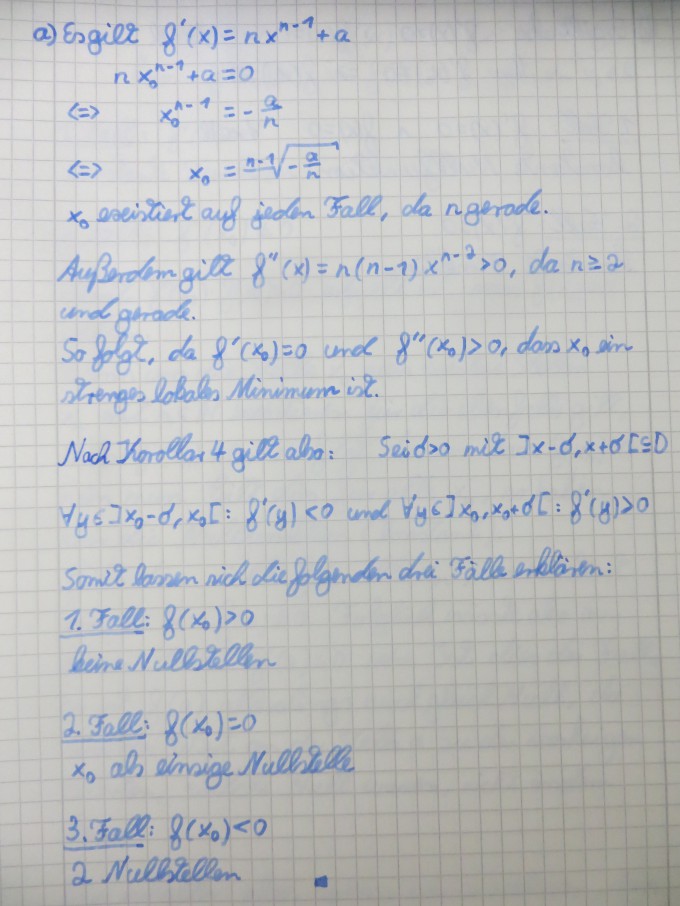 a) Es gilt f'(x) = n x^{n-1} + a
n x_0^{n-1} + a = 0
<=> x_0^{n-1} = - a/n
<=> x_0 = \sqrt[n-1]{- a/n}
x_0 existiert auf jeden Fall, da n gerade.
Außerdem gilt f''(x) = n(n-1) x^{n-2} > 0, da n ≥ 2
und gerade.
So folgt, da f'(x_0) = 0 und f''(x_0) > 0, dass x_0 ein
strenges lokales Minimum ist.
Nach Korollar 4 gilt also: Sei d>0 mit ]x-d, x+d[ ⊆ D
∀y ∈ ]x_0-d, x_0[ : f'(y) < 0 und ∀y ∈ ]x_0, x_0+d[ : f'(y) > 0
Somit lassen sich die folgenden drei Fälle erklären:
1. Fall: f(x_0) > 0
keine Nullstellen
2. Fall: f(x_0) = 0
x_0 als einzige Nullstelle
3. Fall: f(x_0) < 0
2 Nullstellen ■